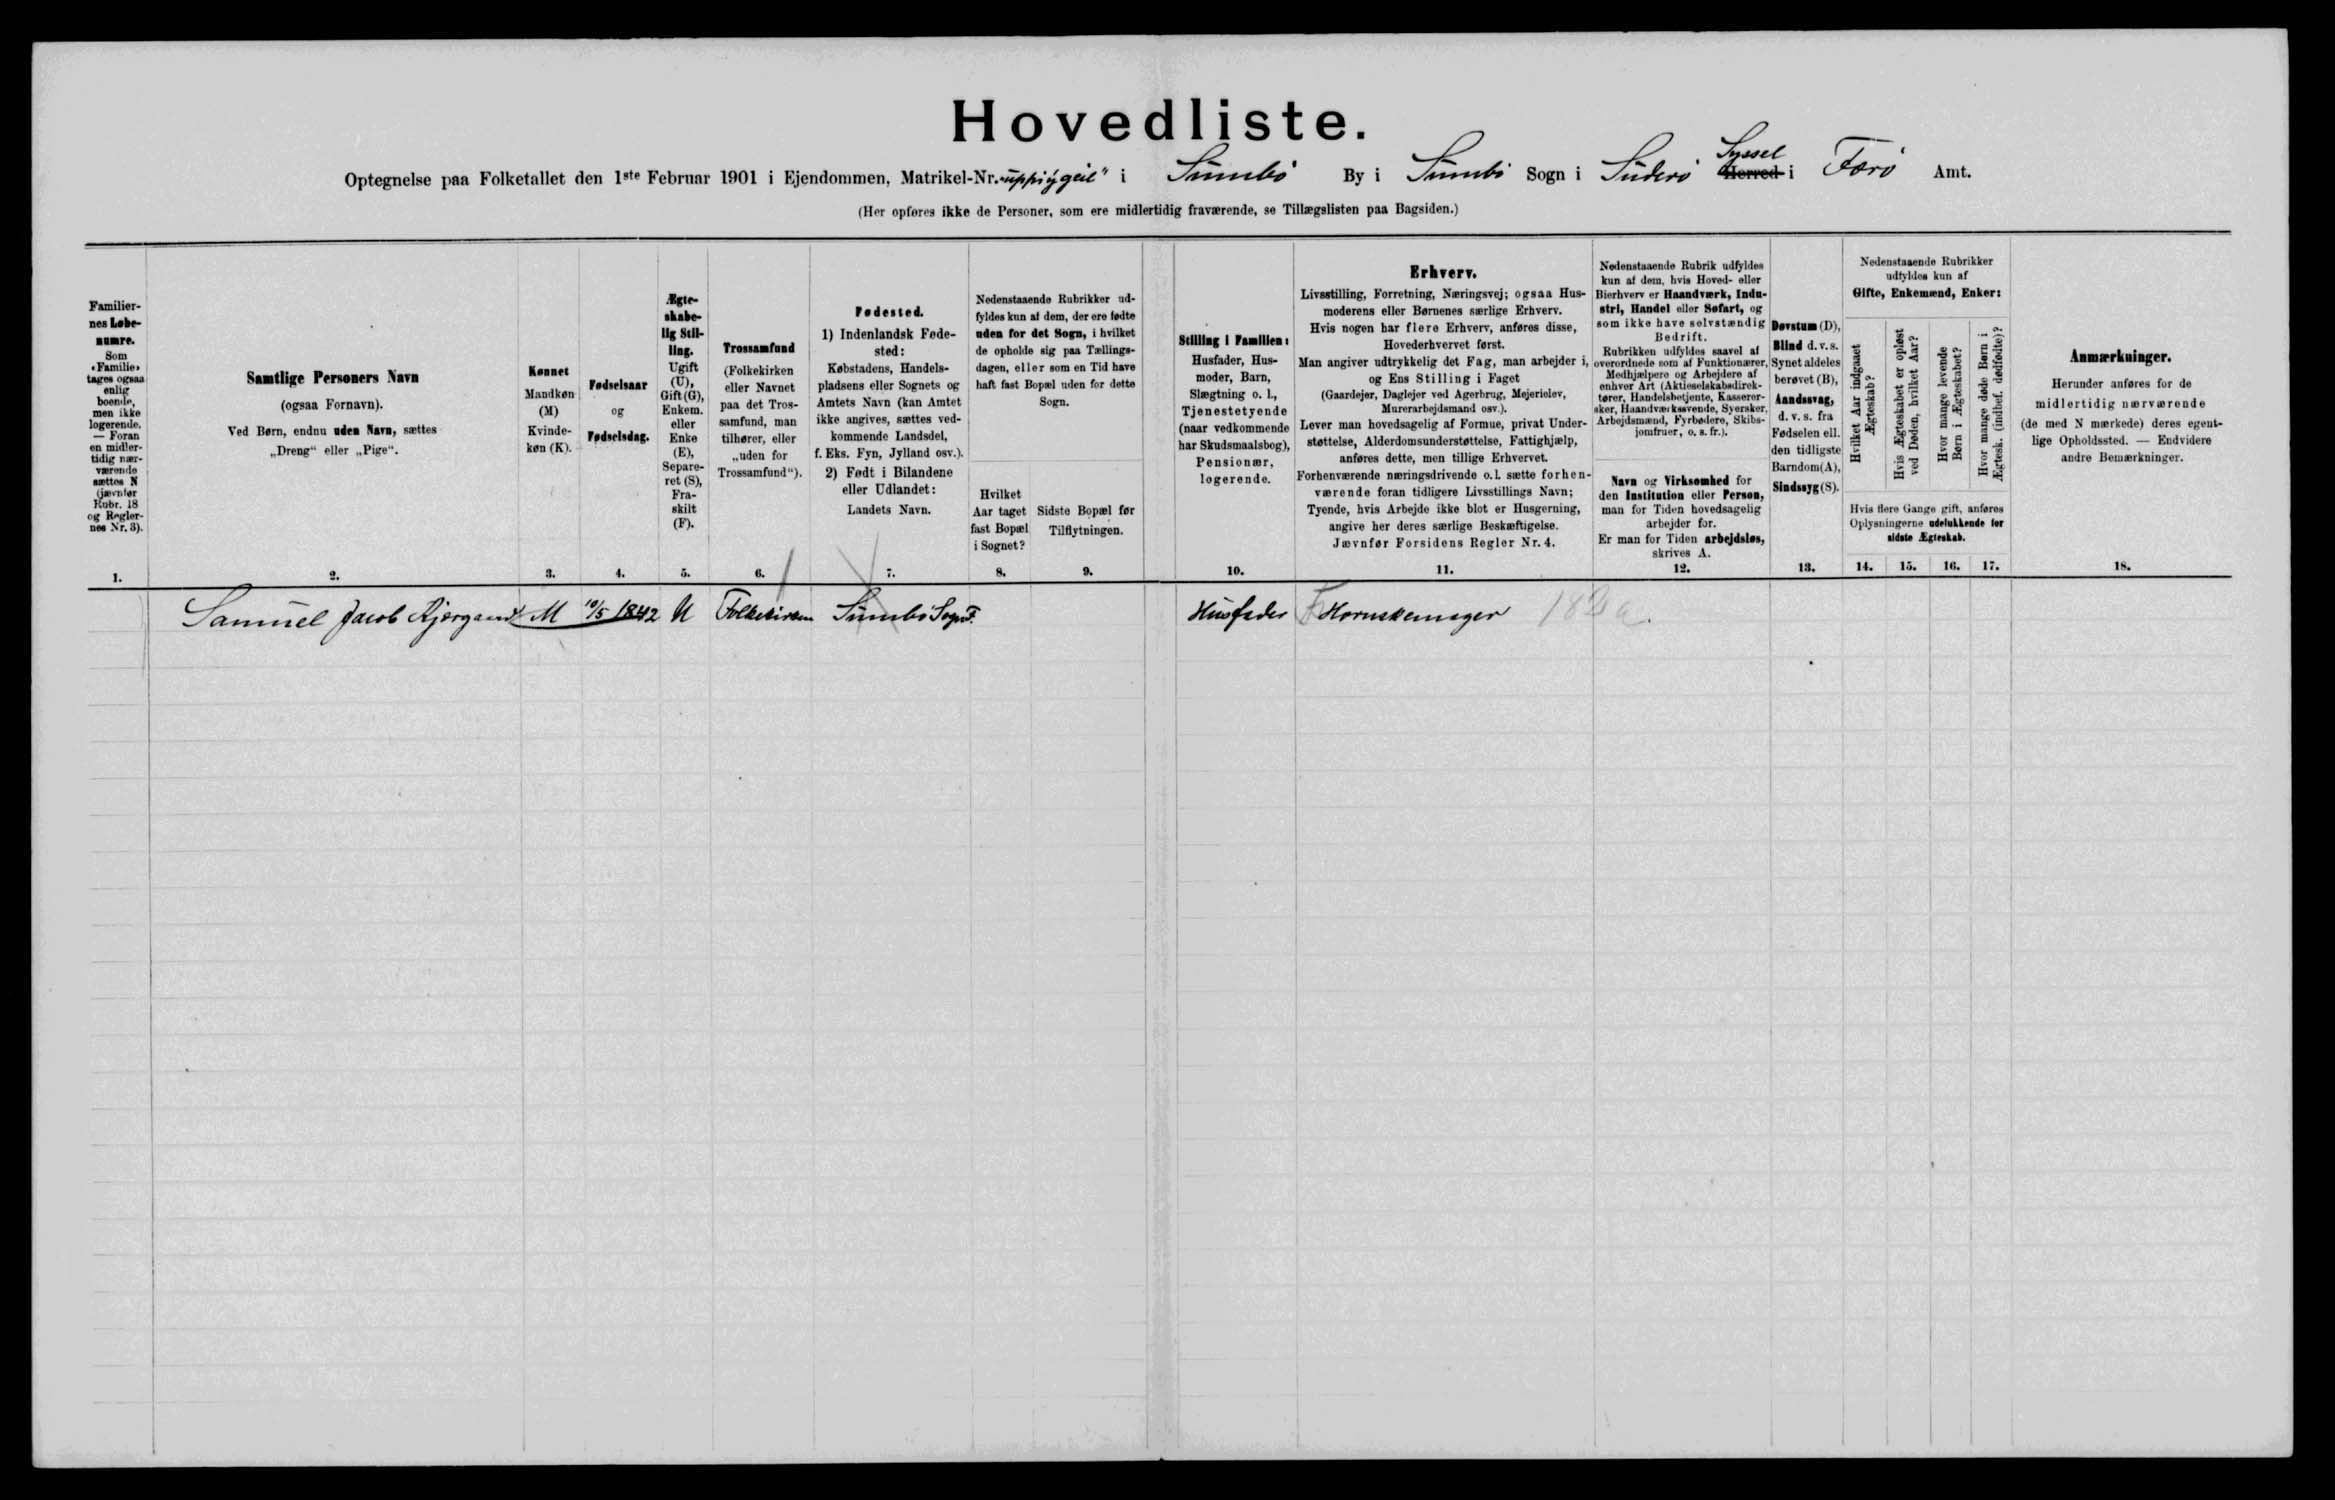 Hovedliste.
Optegnelse paa Folketallet den 1ste Februar 1901 i Ejendommen, Matrikel-Nr. "uppiygeil" i Sumbö By i Sumbö Sogn i Suderö Herred Syssel i Færö Amt.
(Her opføres ikke de Personer, som ere midlertidig fraværende, se Tillægslisten paa Bagsiden.)
Familier-
nes Løbe-
numre.
Som
«Familie»
tages ogsaa
enlig
boende,
men ikke
logerende.
— Foran
en midler-
tidig nær-
værende
sættes N
(jævnfør
Rubr. 18
og Regler-
nes Nr. 3).
1.
Samtlige Personers Navn
(ogsaa Fornavn).
Ved Børn, endnu uden Navn, sættes
„Dreng" eller „Pige".
2.
Kønnet
Mandkøn
(M)
Kvinde-
køn (K).
3.
Fødselsaar
og
Fødselsdag.
4.
Ægte-
skabe-
lig Stil-
ling.
Ugift
(U),
Gift (G),
Enkem.
eller
Enke
(E),
Separe-
ret (S),
Fra-
skilt
(F).
5.
Trossamfund
(Folkekirken
eller Navnet
paa det Tros-
samfund, man
tilhører, eller
„uden for
Trossamfund").
6.
Fødested.
1) Indenlandsk Føde-
sted:
Købstadens, Handels-
pladsens eller Sognets og
Amtets Navn (kan Amtet
ikke angives, sættes ved-
kommende Landsdel,
f. Eks. Fyn, Jylland osv.).
2) Født i Bilandene
eller Udlandet:
Landets Navn.
7.
Nedenstaaende Rubrikker ud-
fyldes kun af dem, der ere fødte
uden for det Sogn, i hvilket
de opholde sig paa Tællings-
dagen, eller som en Tid have
haft fast Bopæl uden for dette
Sogn.
Hvilket
Aar taget
fast Bopæl
i Sognet?
8.
Sidste Bopæl før
Tilflytningen.
9.
Stilling i Familien:
Husfader, Hus-
moder, Barn,
Slægtning o. l.,
Tjenestetyende
(naar vedkommende
har Skudsmaalsbog),
Pensionær,
logerende.
10.
Erhverv.
Livsstilling, Forretning, Næringsvej; ogsaa Hus-
moderens eller Børnenes særlige Erhverv.
Hvis nogen har flere Erhverv, anføres disse,
Hovederhvervet først.
Man angiver udtrykkelig det Fag, man arbejder i,
og Ens Stilling i Faget
(Gaardejer, Daglejer ved Agerbrug, Mejerielev,
Murerarbejdsmand osv.).
Lever man hovedsagelig af Formue, privat Under-
støttelse, Alderdomsunderstøttelse, Fattighjælp,
anføres dette, men tillige Erhvervet.
Forhenværende næringsdrivende o. l. sætte forhen-
værende foran tidligere Livsstillings Navn;
Tyende, hvis Arbejde ikke blot er Husgerning,
angive her deres særlige Beskæftigelse.
Jævnfør Forsidens Regler Nr. 4.
11.
Nedenstaaende Rubrik udfyldes
kun af dem, hvis Hoved- eller
Bierhverv er Haandværk, Indu-
stri, Handel eller Søfart, og
som ikke have selvstændig
Bedrift.
Rubrikken udfyldes saavel af
overordnede som af Funktionærer,
Medhjælpere og Arbejdere af
enhver Art (Aktieselskabsdirek-
tører, Handelsbetjente, Kasserer-
sker, Haandværkssvende, Syersker,
Arbejdsmænd, Fyrbødere, Skibs-
jomfruer, o. s. fr.).
Navn og Virksomhed for
den Institution eller Person,
man for Tiden hovedsagelig
arbejder for.
Er man for Tiden arbejdsløs,
skrives A.
12.
Døvstum (D),
Blind d. v. s.
Synet aldeles
berøvet (B),
Aandssvag,
d. v. s. fra
Fødselen ell.
den tidligste
Barndom (A),
Sindssyg (S).
13.
Nedenstaaende Rubrikker
udfyldes kun af
Gifte, Enkemænd, Enker:
Hvilket Aar indgaaet
Ægteskab?
Hvis Ægteskabet er opløst
ved Døden, hvilket Aar?
Hvor mange levende
Børn i Ægteskabet?
Hvor mange døde Børn i
Ægtesk. (indbef. dødfødte)?
Hvis flere Gange gift, anføres
Oplysningerne udelukkende for
sidste Ægteskab.
14. 15. 16. 17.
Anmærkninger.
Herunder anføres for de
midlertidig nærværende
(de med N mærkede) deres egent-
lige Opholdssted. — Endvidere
andre Bemærkninger.
18.
Samuel Jacob Kjærgaard M 10/5 1842 U Folkekirken Sumbö Sogn F. Husfader Hornskemager